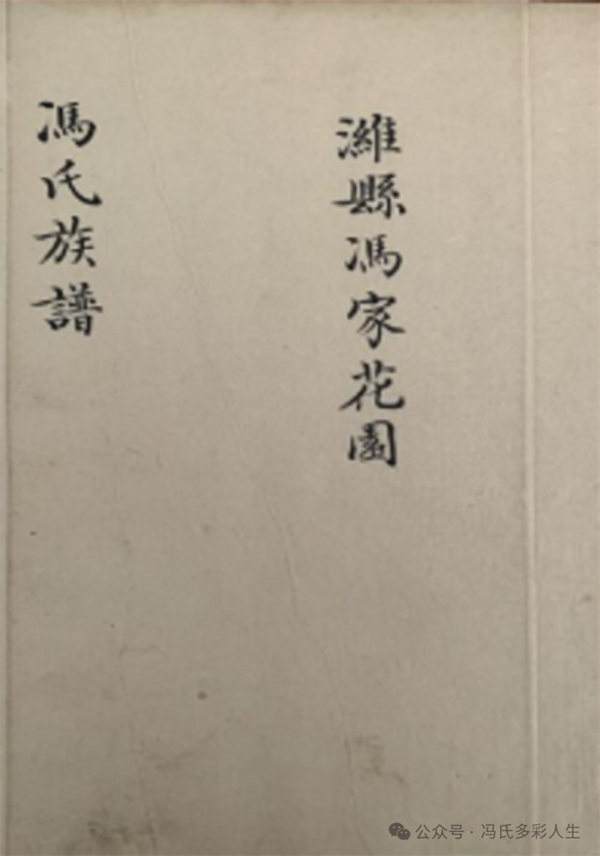 濰縣馮家花園
馮氏族譜
公众号·冯氏多彩人生